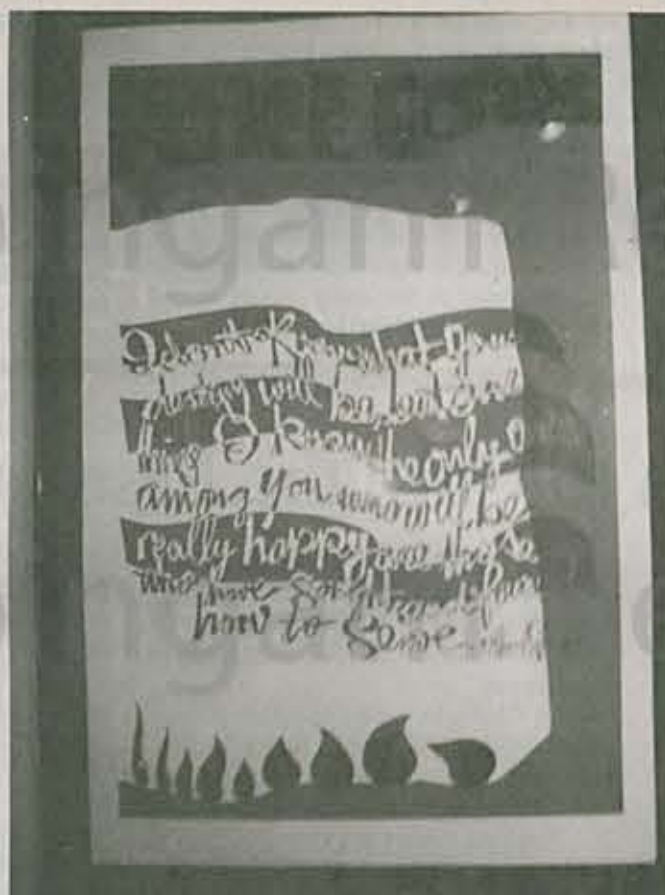 I don't know what your
destiny will be, but one
thing I know, the only o
among you who will be
really happy are those
who have sought and found
how to serve